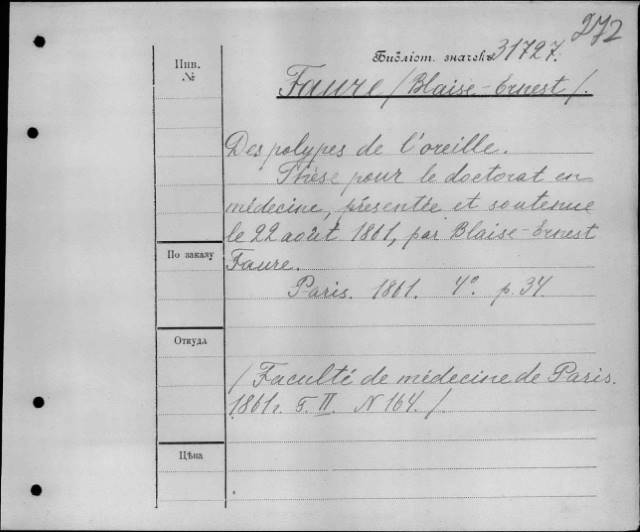 272
Библіот. значекъ 31727.
Инв.
№
Faure /Blaise-Ernest/.
Des polypes de l'oreille.
Thèse pour le doctorat en
médecine, présentée et soutenue
le 22 août 1861, par Blaise-Ernest
По заказу
Faure.
Paris. 1861. 4º. p. 34.
Откуда
/Faculté de médecine de Paris.
1861г. T. II. N 164./.
Цѣна